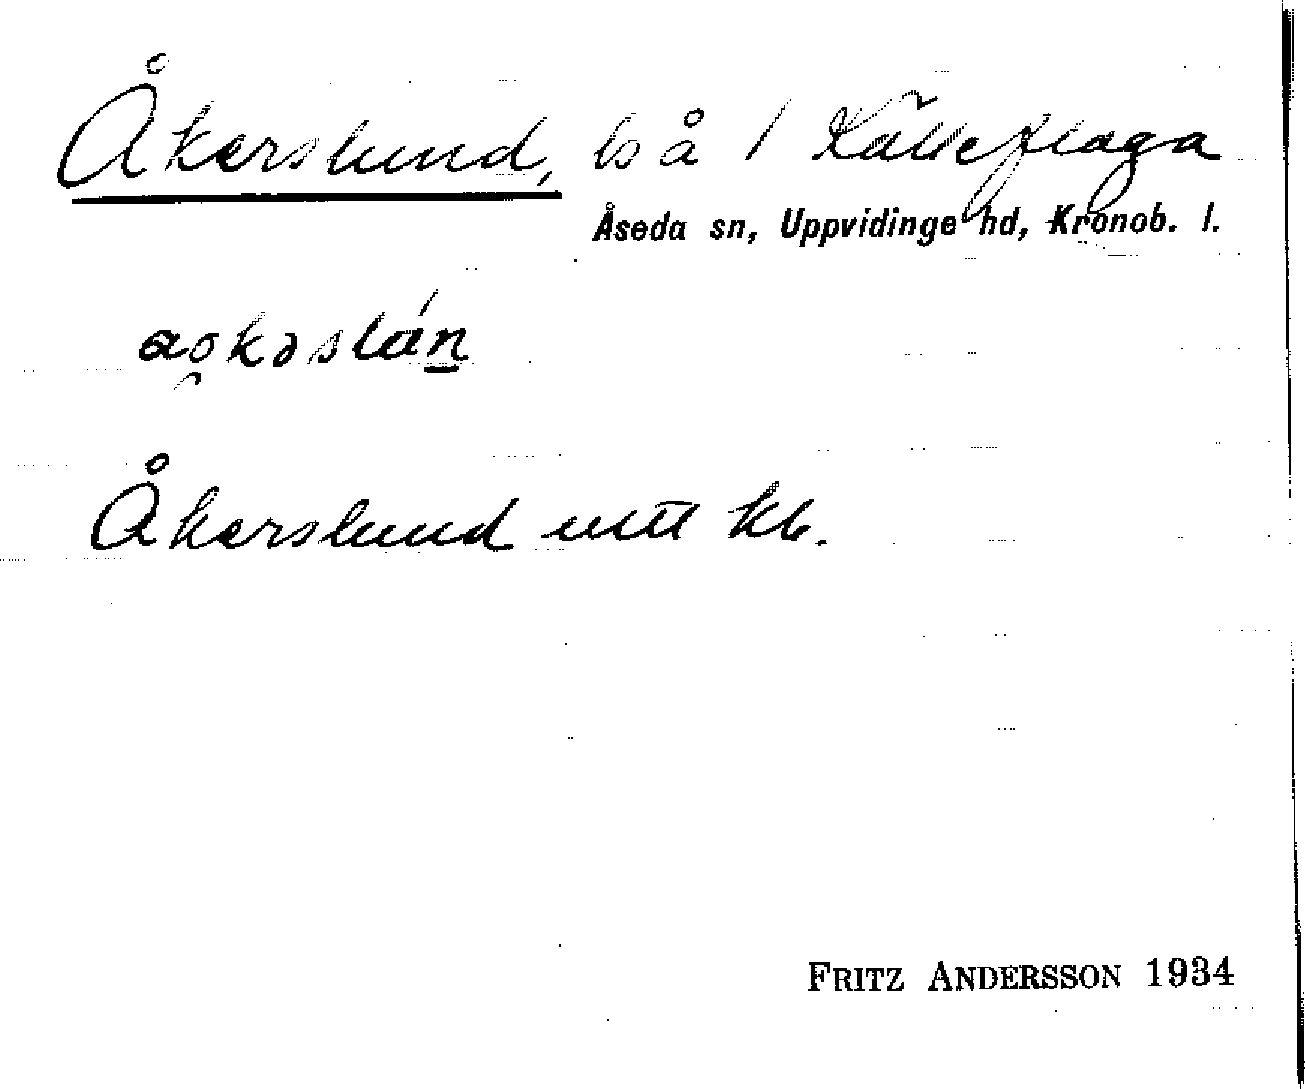 Åkerslund, ls å 1 Källeflaga
Åseda sn, Uppvidinge hd, Kronob. l.
Åkerslund utt kb.
FRITZ ANDERSSON 1934